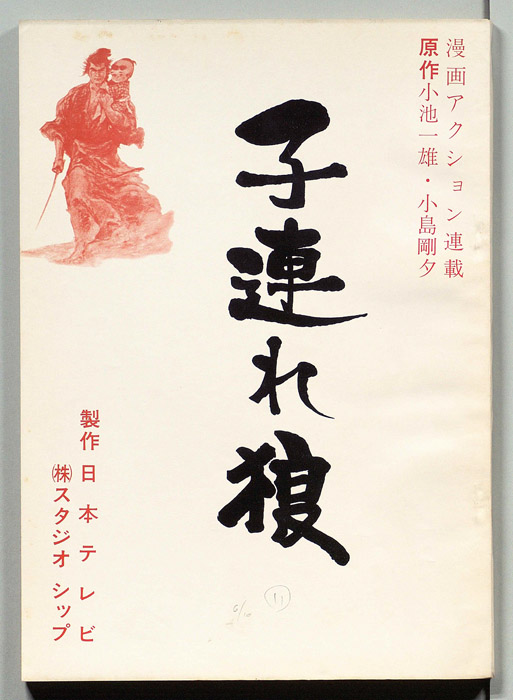 漫画アクション連載
原作小池一雄・小島剛夕
子連れ狼
製作日本テレビ
㈱スタジオシップ
11
6/10